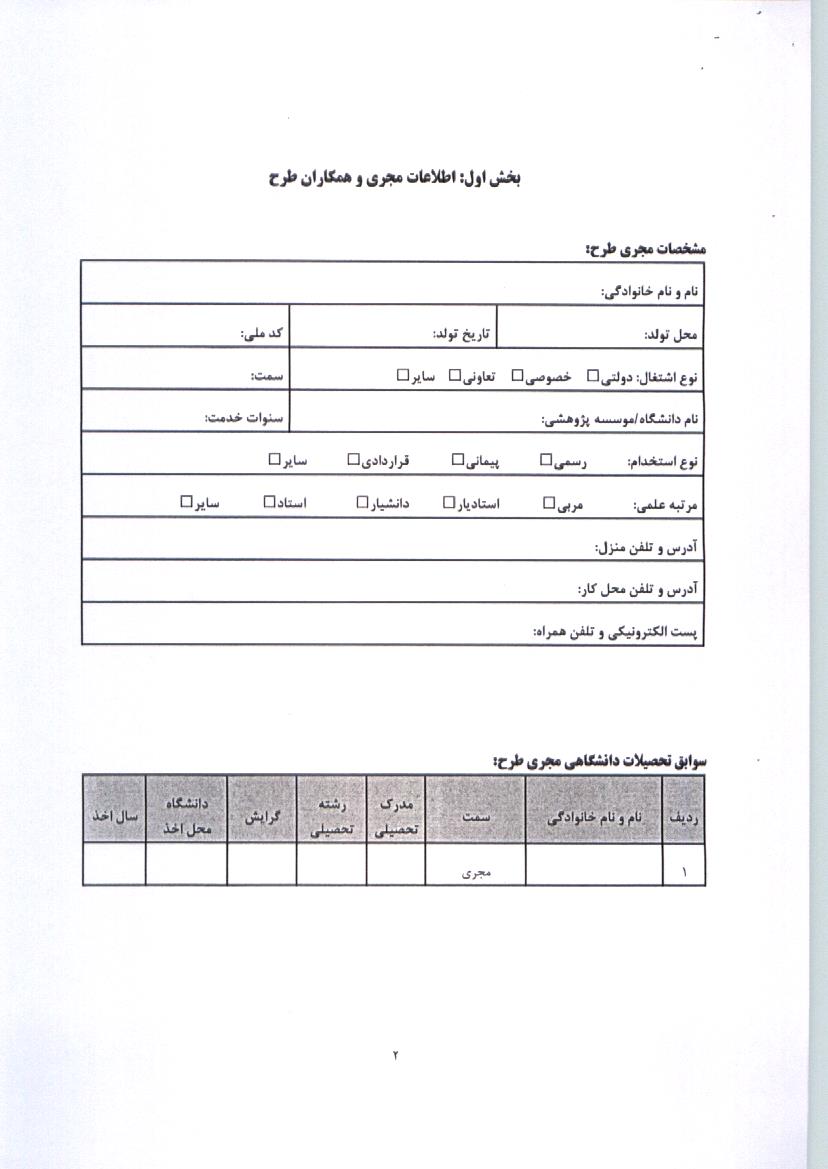 بخش اول: اطلاعات مجری و همکاران طرح
مشخصات مجری طرح:
نام و نام خانوادگی:
محل تولد: تاریخ تولد: کد ملی:
نوع اشتغال: دولتی☐ خصوصی☐ تعاونی☐ سایر☐ سمت:
نام دانشگاه/موسسه پژوهشی: سنوات خدمت:
نوع استخدام: رسمی☐ پیمانی☐ قراردادی☐ سایر☐
مرتبه علمی: مربی☐ استادیار☐ دانشیار☐ استاد☐ سایر☐
آدرس و تلفن منزل:
آدرس و تلفن محل کار:
پست الکترونیکی و تلفن همراه:
سوابق تحصیلات دانشگاهی مجری طرح:
ردیف نام و نام خانوادگی سمت مدرک تحصیلی رشته تحصیلی گرایش دانشگاه محل اخذ سال اخذ
۱ مجری
۲